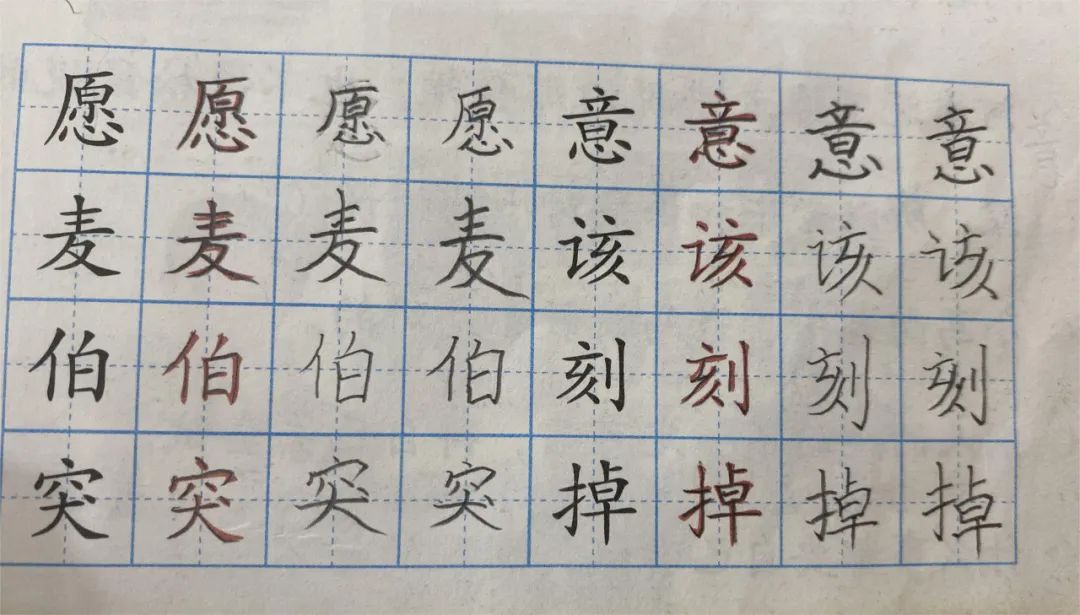 愿愿愿愿意意意意
麦麦麦麦该该该该
伯伯伯伯刻刻刻刻
突突突突掉掉掉掉